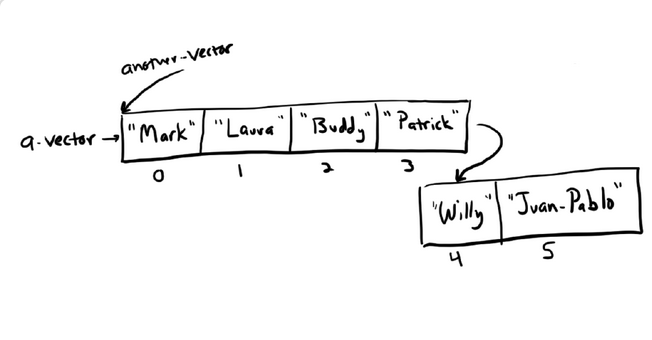 another-vector
a-vector
"Mark" "Laura" "Buddy" "Patrick"
0 1 2 3
"Willy" "Juan-Pablo"
4 5